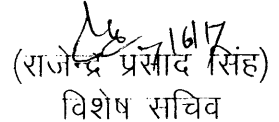 7/6/17
(राजेन्द्र प्रसाद सिंह)
विशेष सचिव